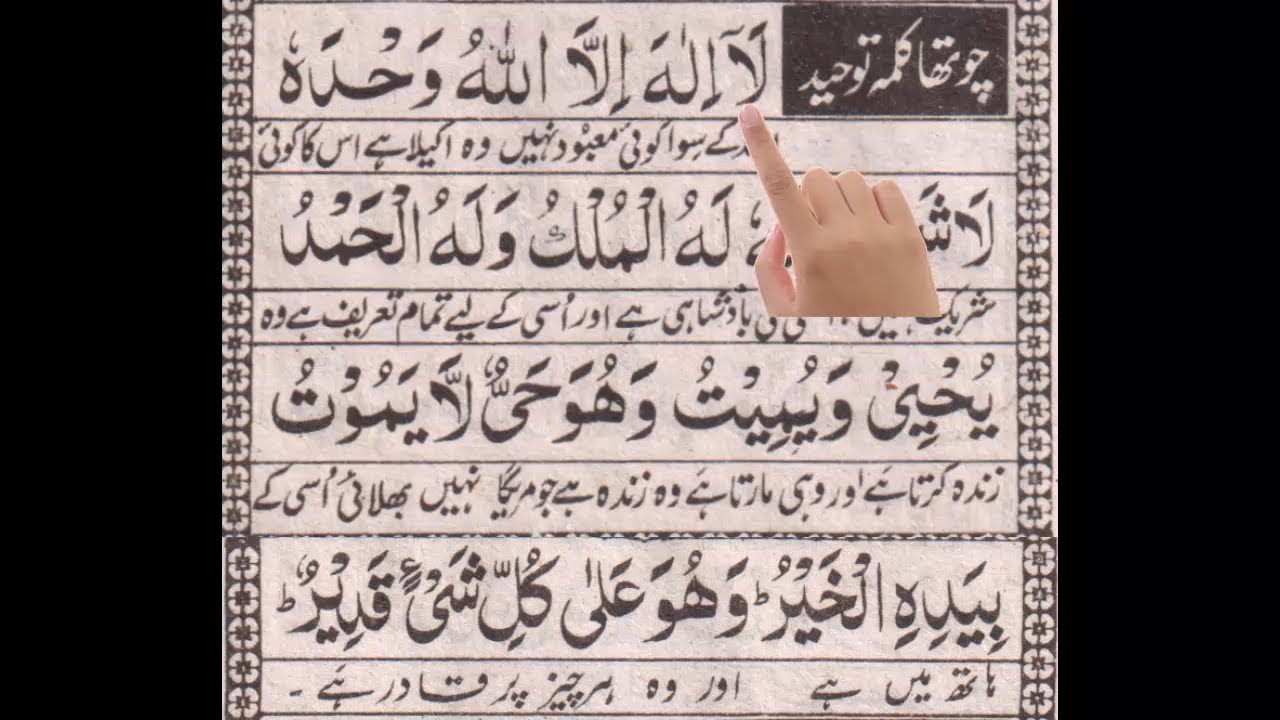 چوتھا کلمہ توحید
لَآ اِلٰهَ اِلَّا اللّٰهُ وَحْدَهٗ
کے سوا کوئی معبود نہیں وہ اکیلا ہے اس کا کوئی
لَا لَهُ الْمُلْكُ وَلَهُ الْحَمْدُ
شریک کی بادشاہی ہے اور اُسی کے لیے تمام تعریف ہے وہ
يُحْيِیْ وَيُمِيْتُ وَهُوَ حَیٌّ لَّا يَمُوْتُ
زندہ کرتا ہے اور وہی مارتا ہے وہ زندہ ہے جو مریگا نہیں بھلائی اُسی کے
بِيَدِهِ الْخَيْرُ ؕ وَهُوَ عَلٰى كُلِّ شَیْءٍ قَدِيْرٌ ؕ
ہاتھ میں ہے اور وہ ہر چیز پر قادر ہے۔